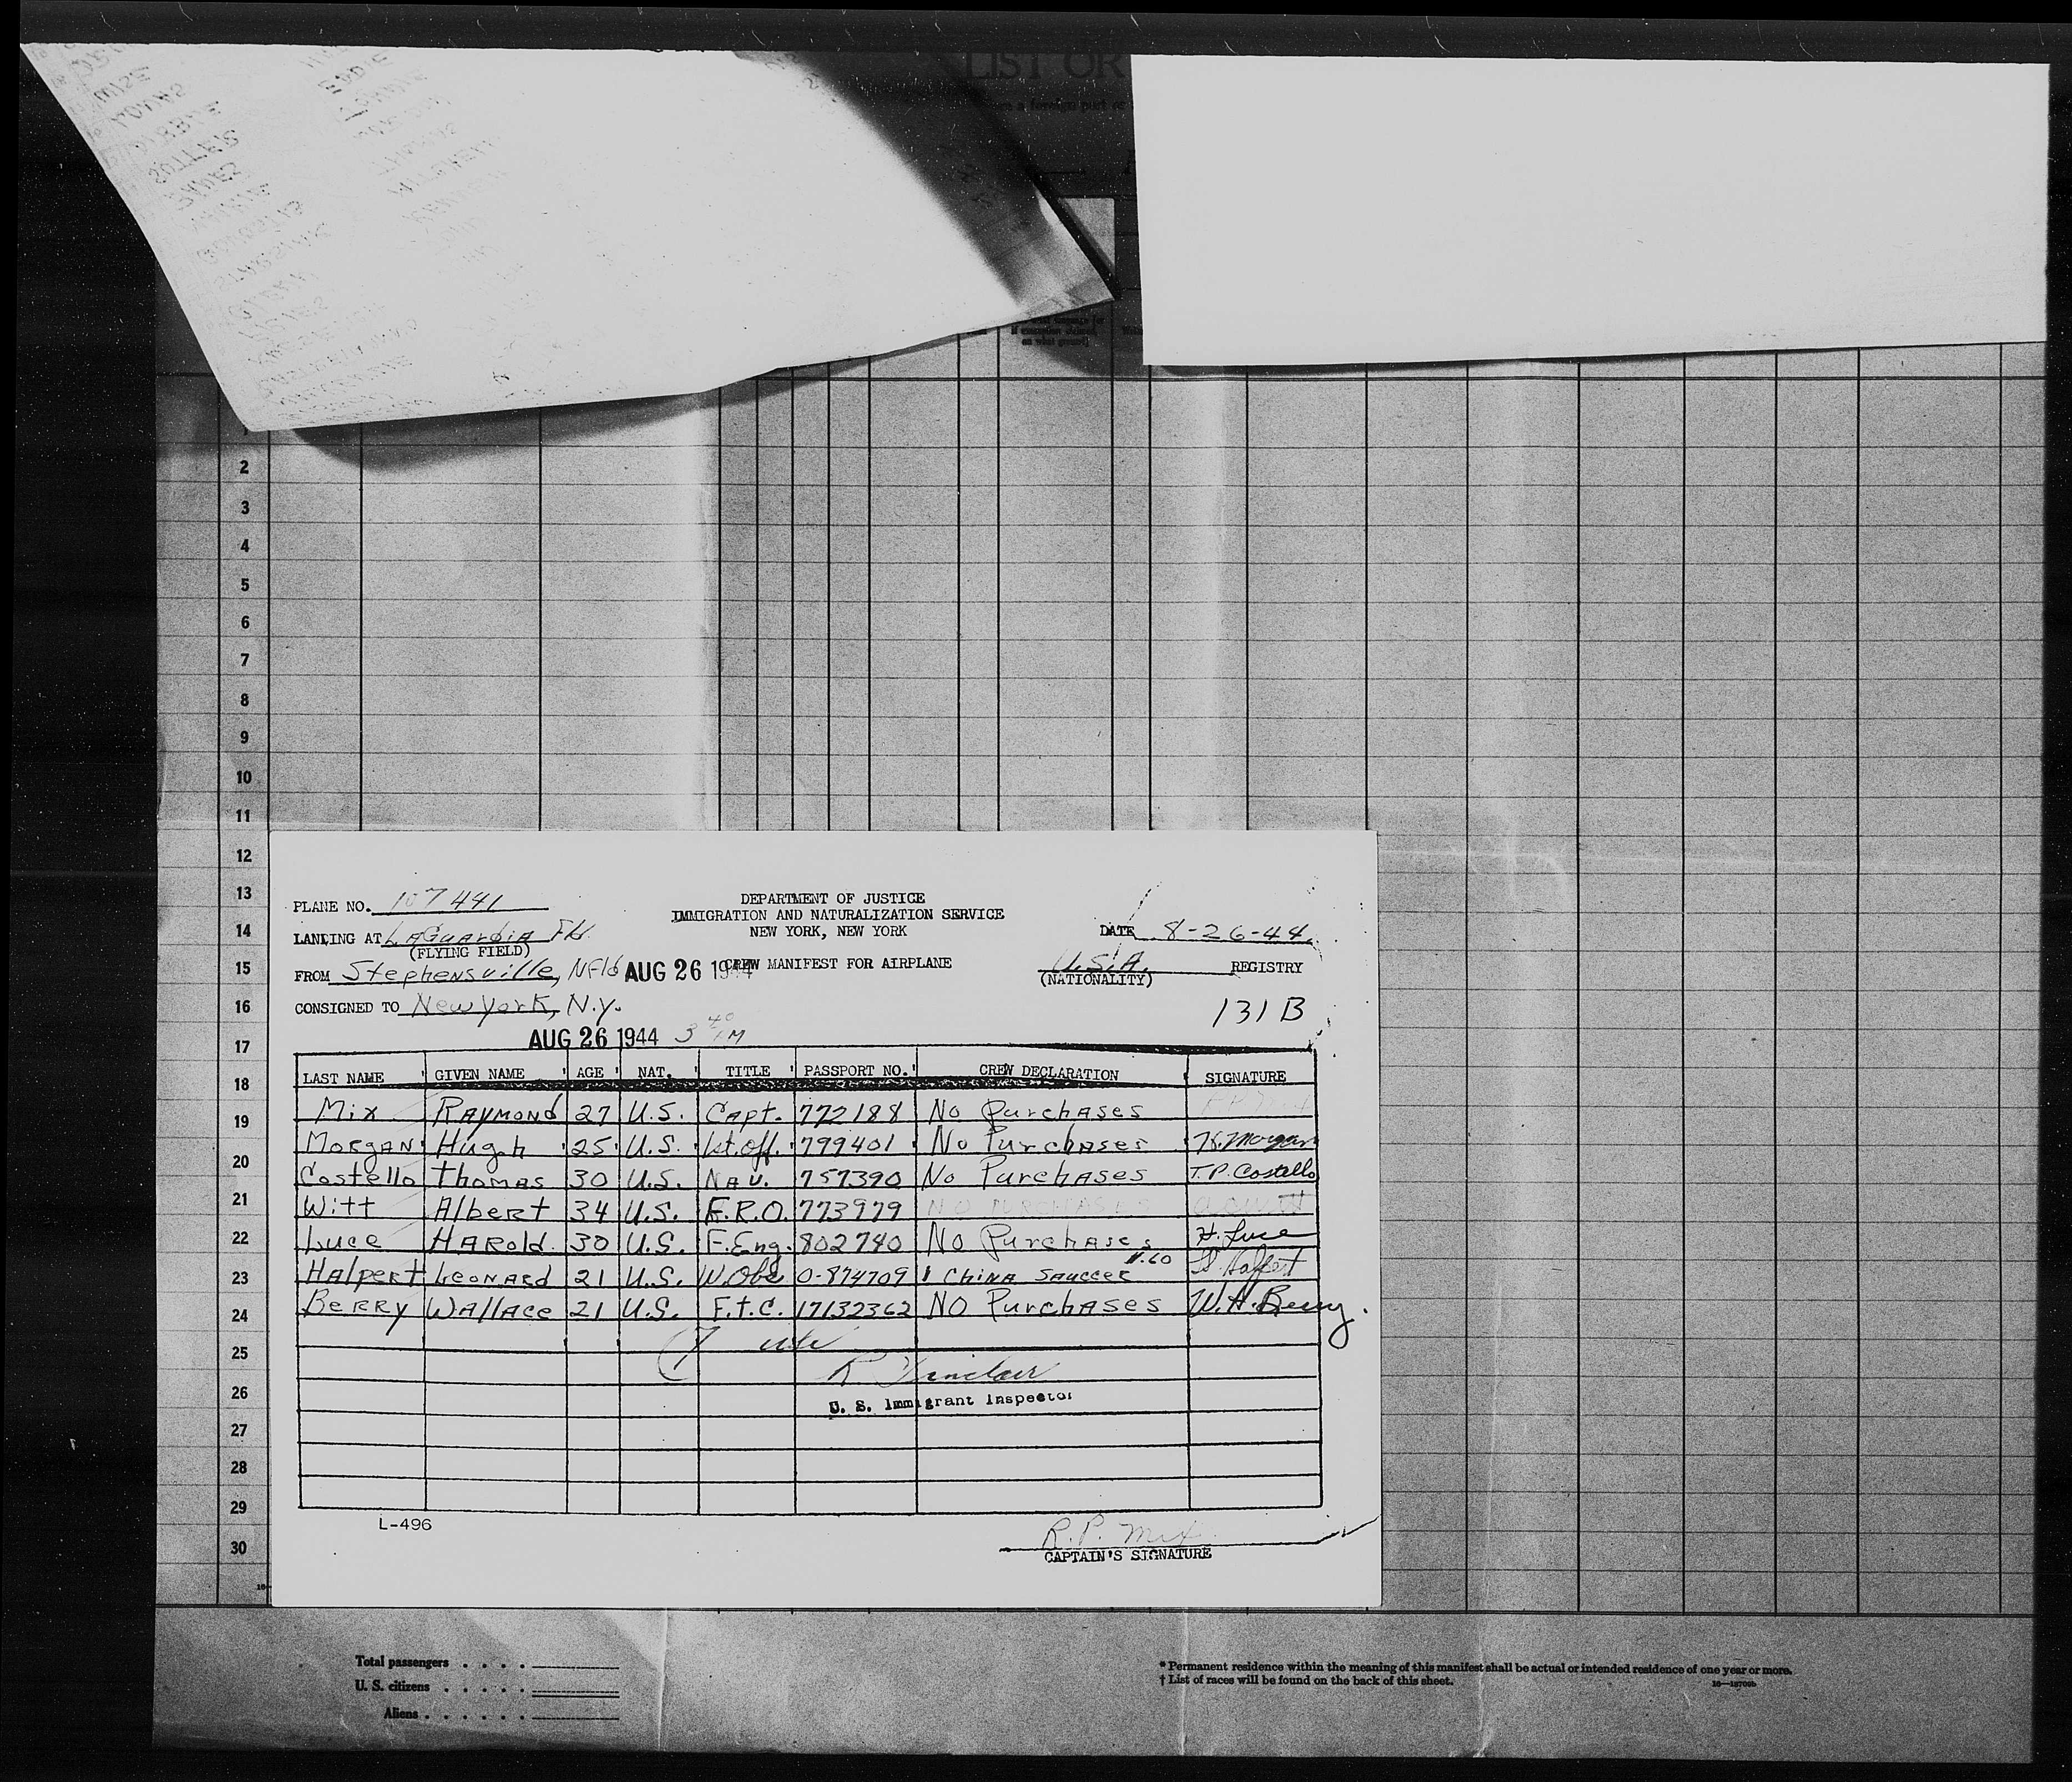 LIST OR
WISE
SUTTER
EDDIE
2
3
4
5
6
7
8
9
10
11
12
13
14
15
16
17
18
19
20
21
22
23
24
25
26
27
28
29
30
PLANE NO. 107441
DEPARTMENT OF JUSTICE
IMMIGRATION AND NATURALIZATION SERVICE
NEW YORK, NEW YORK
LANDING AT LAGuardia Fld.
(FLYING FIELD)
DATE 8-26-44
FROM Stephensville, Nfld AUG 26 1944 CREW MANIFEST FOR AIRPLANE
U.S.A. REGISTRY
(NATIONALITY)
CONSIGNED TO New York, N.Y.
131 B
AUG 26 1944 3 40 PM
LAST NAME GIVEN NAME AGE NAT. TITLE PASSPORT NO. CREW DECLARATION SIGNATURE
Mix Raymond 27 U.S. Capt. 772188 No Purchases
Morgan Hugh 25 U.S. 1st. Off. 799401 No Purchases H. Morgan
Costello Thomas 30 U.S. Nav. 757390 No Purchases T.P. Costello
Witt Albert 34 U.S. F.R.O. 773979 NO PURCHASES
Luce Harold 30 U.S. F.Eng. 802740 No Purchases H. Luce
Halpert Leonard 21 U.S. W.Obs O-874709 1 China Saucer $1.60 L. Halpert
Berry Wallace 21 U.S. F.T.C. 17132362 NO Purchases W.A. Berry.
R Sinclair
U. S. Immigrant Inspector
L-496
R.P. Mix
CAPTAIN'S SIGNATURE
Total passengers
U. S. citizens
Aliens
* Permanent residence within the meaning of this manifest shall be actual or intended residence of one year or more.
† List of races will be found on the back of this sheet.